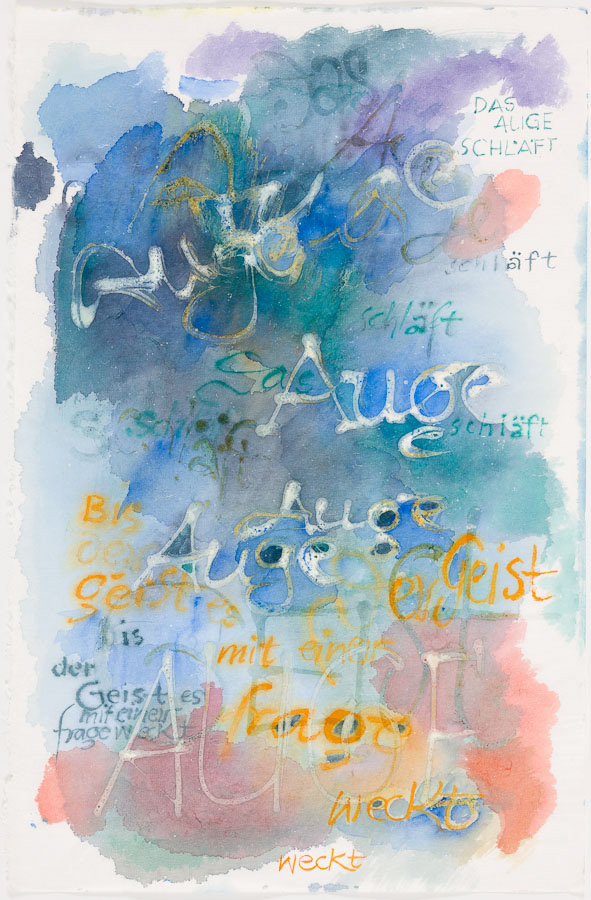 Das
DAS
AUGE
SCHLÄFT
Auge
Auge
schläft
schläft
Das
Auge
schläft
schläft
Auge
Auge
Bis
der
geist es
er Geist
bis
der
Geist es
mit einer
frage weckt
mit einer
frage
AUGE
weckt
weckt